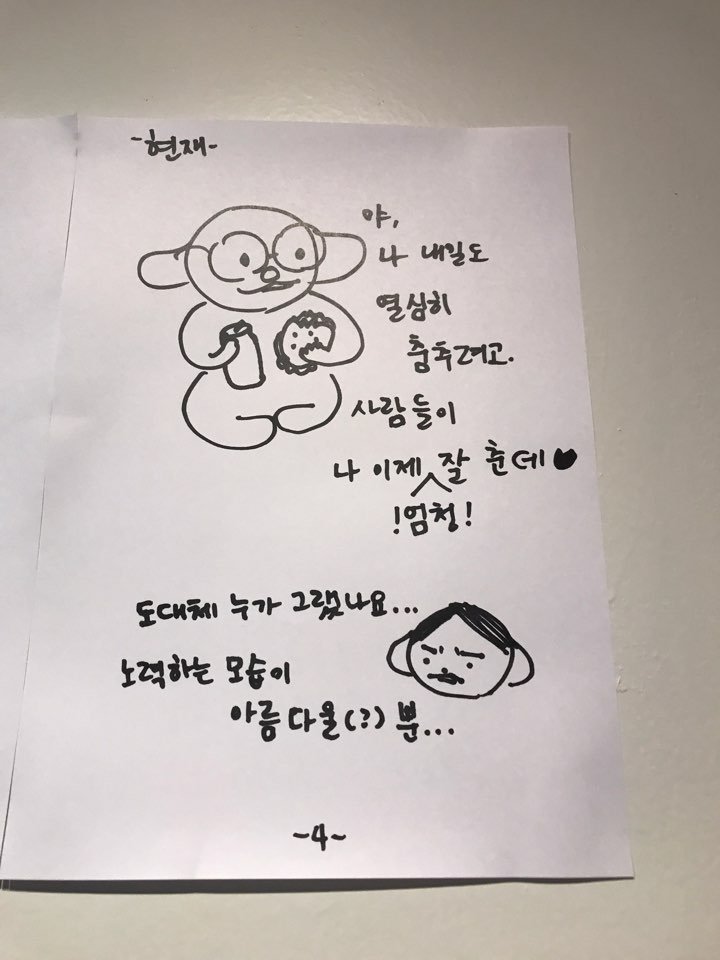 -현재-
야,
나 내일도
열심히
춤추려고.
사람들이
나 이제 잘 춘데♥
!엄청!
도대체 누가 그랬나요...
노력하는 모습이
아름다울(?) 뿐...
~4~